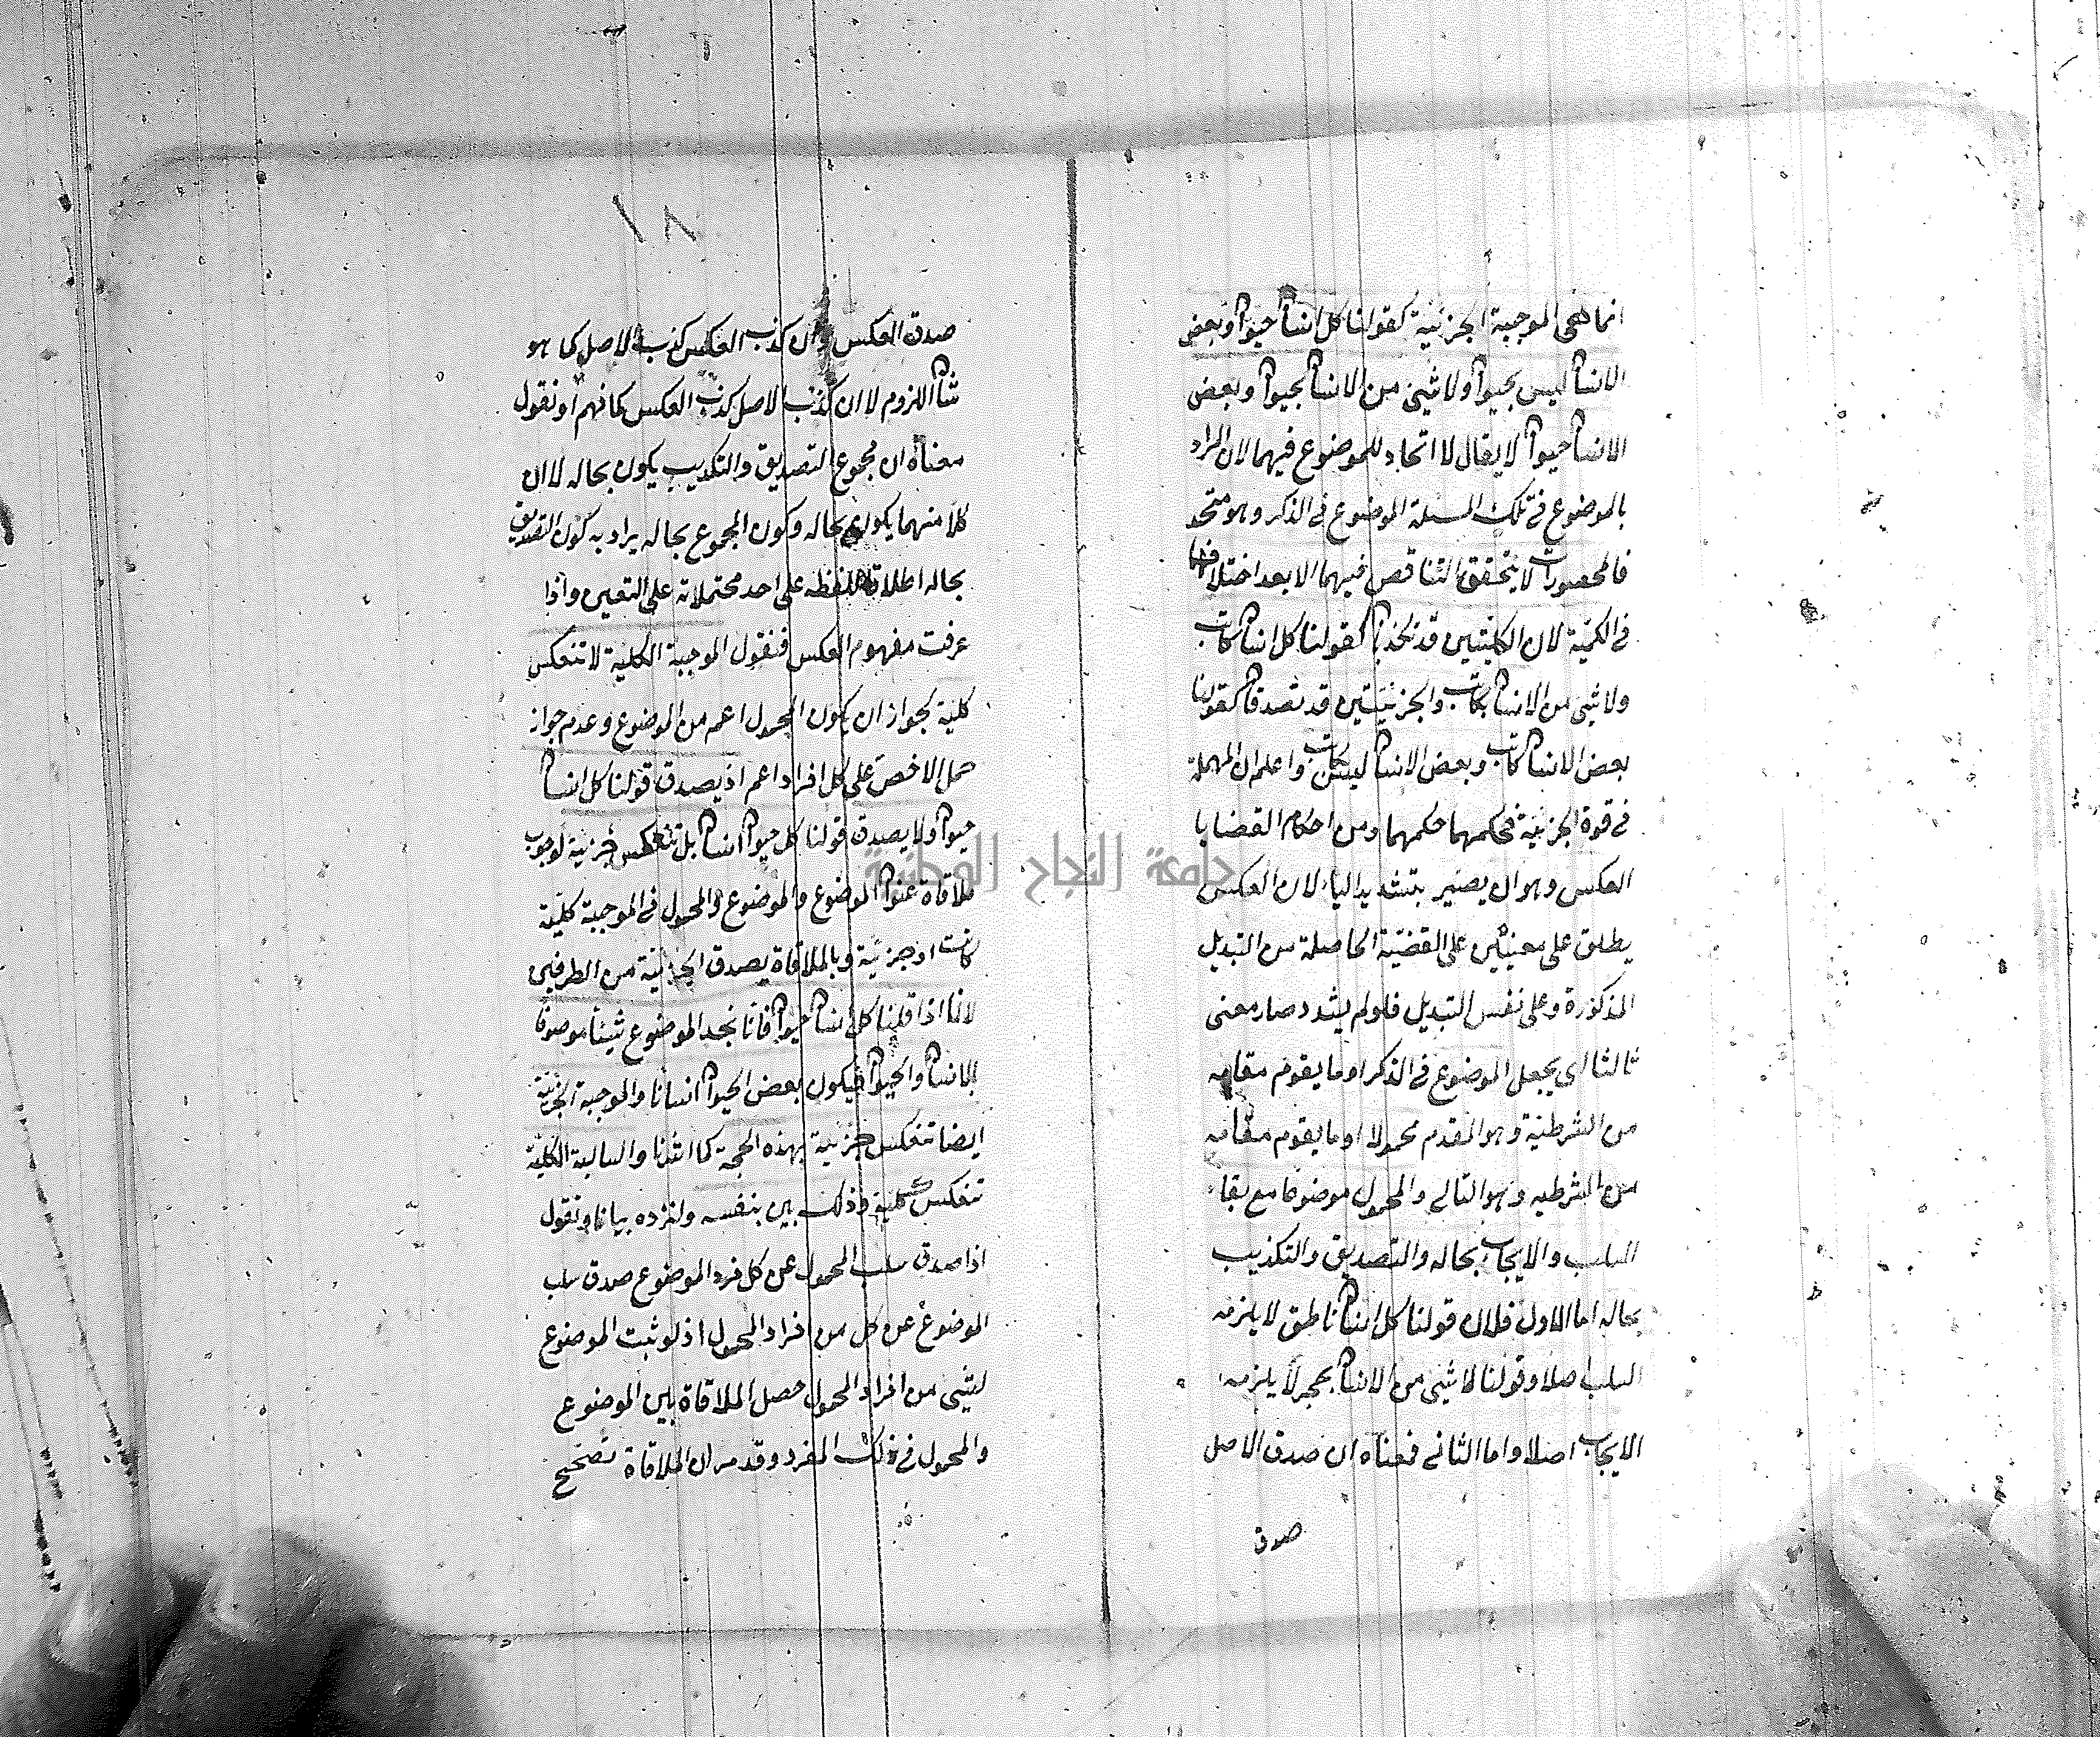 انما هى الموجبة الجزئية كقولنا كل انسان حيوان وبعض
الانسان ليس بحيوان ولا شئ من الانسان بحيوان وبعض
الانسان حيوان لا يقال لا اتحاد للموضوع فيهما لان المراد
بالموضوع فى تلك المسئلة الموضوع فى الذكر وهو متحد
فالمحصورات لا يتحقق التناقص فيهما الا بعد اختلافهما
فى الكمية لان الكليتين قد تكذبان كقولنا كل انسان كاتب
ولا شئ من الانسان بكاتب والجزئيتين قد تصدقان كقولنا
بعض الانسان كاتب وبعض الانسان ليس بكاتب واعلم ان المهملة
فى قوة الجزئية فحكمهما حكمهما ومن احكام القضايا
العكس وهو ان يصير بتشديد الياء لان العكس
يطلق على معنيين على القضية الحاصلة من التبديل
المذكورة وعلى نفس التبديل فلو لم يشدد صار معنى
ثالثا اى يجعل الموضوع فى الذكر او ما يقوم مقامه
من الشرطية وهو المقدم محمولا او ما يقوم مقامه
من الشرطيه وهو التالى والمحمول موضوعا مع بقاء
السلب والايجاب بحاله والتصديق والتكذيب
بحاله اما الاول فلان قولنا كل انسان ناطق لا يلزمه
السلب اصلا وقولنا لا شئ من الانسان بحجر لا يلزمه
الايجاب اصلا واما الثانى فمعناه ان صدق الاصل
صدق
١٨
صدق العكس وان كذب العكس كذب الاصل كما هو
شأن اللزوم لا ان كذب الاصل كذب العكس كما فهم او نقول
معناه ان مجموع التصديق والتكذيب يكون بحاله لا ان
كلا منهما يكون بحاله وكون المجموع بحاله يراد به كون التصديق
بحاله اطلاقا للفظه على احد محتملاته على التعين واذا
عرفت مفهوم العكس فنقول الموجبة الكلية لا تنعكس
كلية لجواز ان يكون المحمول اعم من الموضوع وعدم جواز
حمل الاخص على كل افراد اعم اذ يصدق قولنا كل انسان
حيوان ولا يصدق قولنا كل حيوان انسان بل تنعكس جزئية لوجوب
ملاقاة عنوان الموضوع والموضوع والمحمول فى الموجبة كلية
كانت او جزئية وبالملاقاة يصدق الجزئية من الطرفين
لانا اذا قلنا كل انسان حيوان فانا نجد الموضوع شيئا موصوفا
بالانسان والحيوان فيكون بعض الحيوان انسانا والموجبة الجزئية
ايضا تنعكس جزئية بهذه الحجة كما اشرنا والسالبة الكلية
تنعكس كلية وذلك بين بنفسه ولنزده بيانا ونقول
اذا صدق سلب المحمول عن كل فرد الموضوع صدق سلب
الموضوع عن كل من افراد المحمول اذ لو ثبت الموضوع
لشئ من افراد المحمول حصل الملاقاة بين الموضوع
والمحمول فى ذلك المفرد وقد مر ان الملاقاة تصحح
جامعة النجاح الوطنية